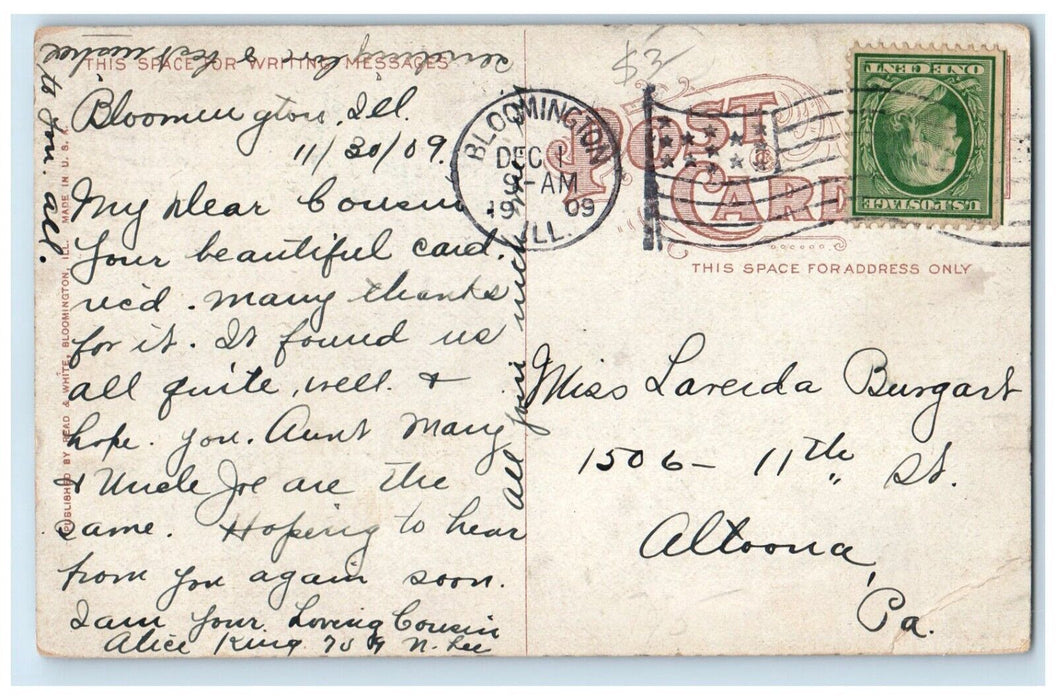 THIS SPACE FOR WRITING MESSAGES
Bloomington, Ill.
11/30/09.
My Dear Cousin
Your beautiful card.
rec'd. many thanks
for it. It found us
all quite, well. &
hope. you. Aunt Mary
& Uncle Joe are the
same. Hoping to hear
from you again soon.
I am Your Loving Cousin
Alice King. 709 N. Lee
All join me in
sending love & best wishes
to you. all.
PUBLISHED BY READ & WHITE, BLOOMINGTON, ILL. MADE IN U. S. A.
$3
BLOOMINGTON,
DEC 1
-AM
1909
ILL.
POST CARD
U.S. POSTAGE
ONE CENT
THIS SPACE FOR ADDRESS ONLY
Miss Laveida Burgart
1506 - 11th St.
Altoona,
Pa.